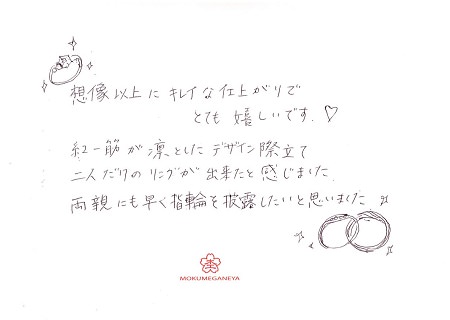 想像以上に キレイな仕上がりで
とても 嬉しいです。♡
紅一筋が凛としたデザイン際立て
二人だけのリングが出来たと感じました
両親にも早く指輪を披露したいと思いました
MOKUMEGANEYA